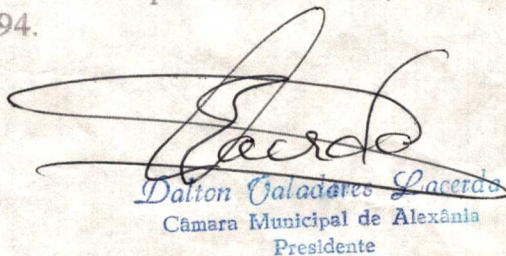 94.
Lacerda
Dalton Valadares Lacerda
Câmara Municipal de Alexânia
Presidente